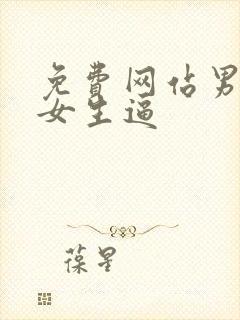 免费网佔男
女生逼
葆星